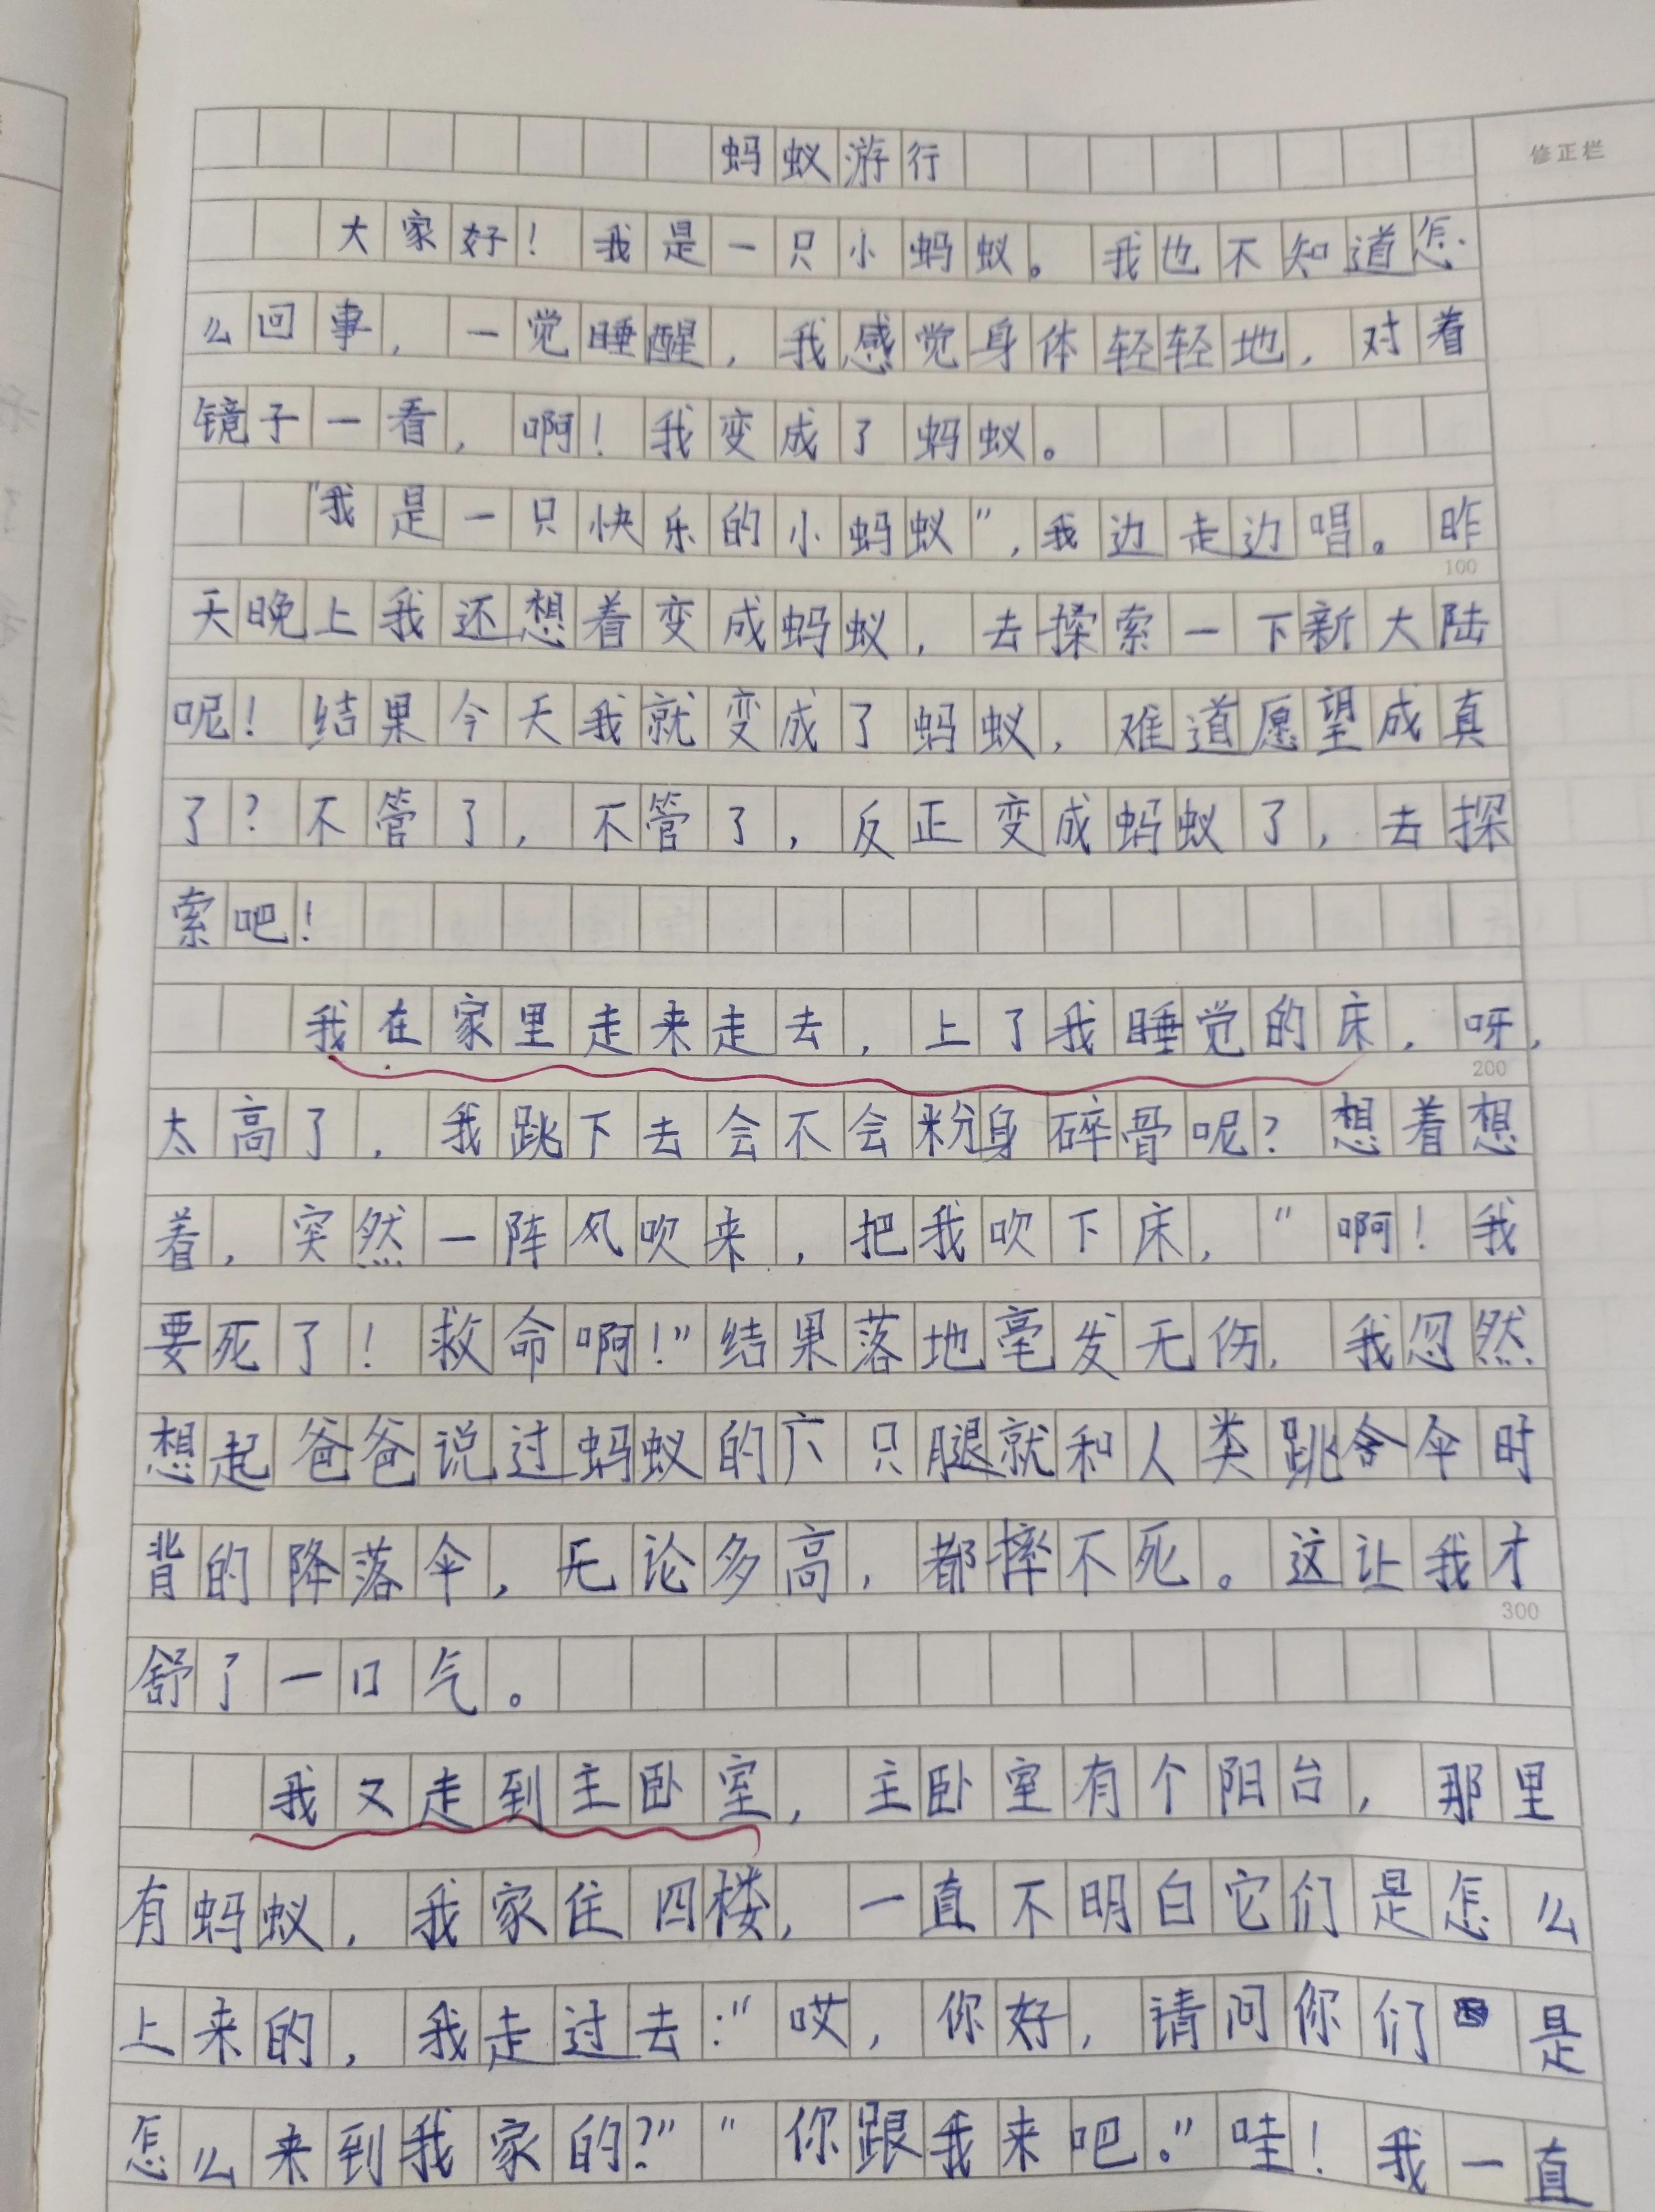 修正栏
蚂蚁游行
大家好！我是一只小蚂蚁。我也不知道怎
么回事，一觉睡醒，我感觉身体轻轻地，对着
镜子一看，啊！我变成了蚂蚁。
"我是一只快乐的小蚂蚁"，我边走边唱。昨
100
天晚上我还想着变成蚂蚁，去探索一下新大陆
呢！结果今天我就变成了蚂蚁，难道愿望成真
了？不管了，不管了，反正变成蚂蚁了，去探
索吧！
我在家里走来走去，上了我睡觉的床，呀，
200
太高了，我跳下去会不会粉身碎骨呢？想着想
着，突然一阵风吹来，把我吹下床，"啊！我
要死了！救命啊！"结果落地毫发无伤，我忽然
想起爸爸说过蚂蚁的六只腿就和人类跳伞时
背的降落伞，无论多高，都摔不死。这让我才
300
舒了一口气。
我又走到主卧室，主卧室有个阳台，那里
有蚂蚁，我家住四楼，一直不明白它们是怎么
上来的，我走过去："哎，你好，请问你们是
怎么来到我家的？""你跟我来吧。"哇！我一直